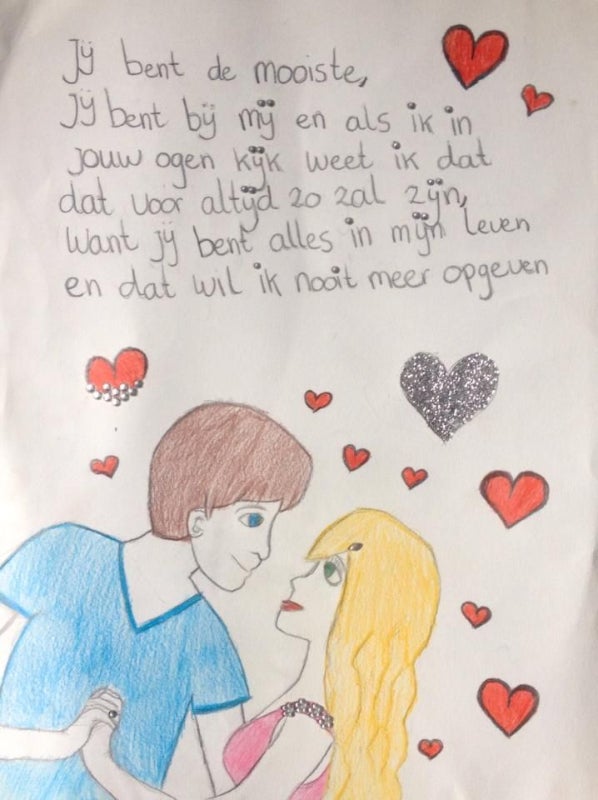 Jij bent de mooiste,
Jij bent bij mij en als ik in
jouw ogen kijk weet ik dat
dat voor altijd zo zal zijn,
want jij bent alles in mijn leven
en dat wil ik nooit meer opgeven